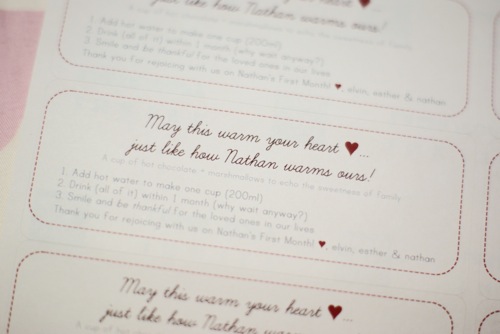 just like how Nathan warms ours!
1. Add hot water to make one cup (200ml)
2. Drink (all of it) within 1 month (why wait anyway?)
3. Smile and be thankful for the loved ones in our lives
Thank you for rejoicing with us on Nathan's First Month! ♥, elvin, esther & nathan
May this warm your heart ♥...
just like how Nathan warms ours!
A cup of hot chocolate + marshmallows to echo the sweetness of family
1. Add hot water to make one cup (200ml)
2. Drink (all of it) within 1 month (why wait anyway?)
3. Smile and be thankful for the loved ones in our lives
Thank you for rejoicing with us on Nathan's First Month! ♥, elvin, esther & nathan
May this warm your heart ♥...
just like how Nathan warms ours!